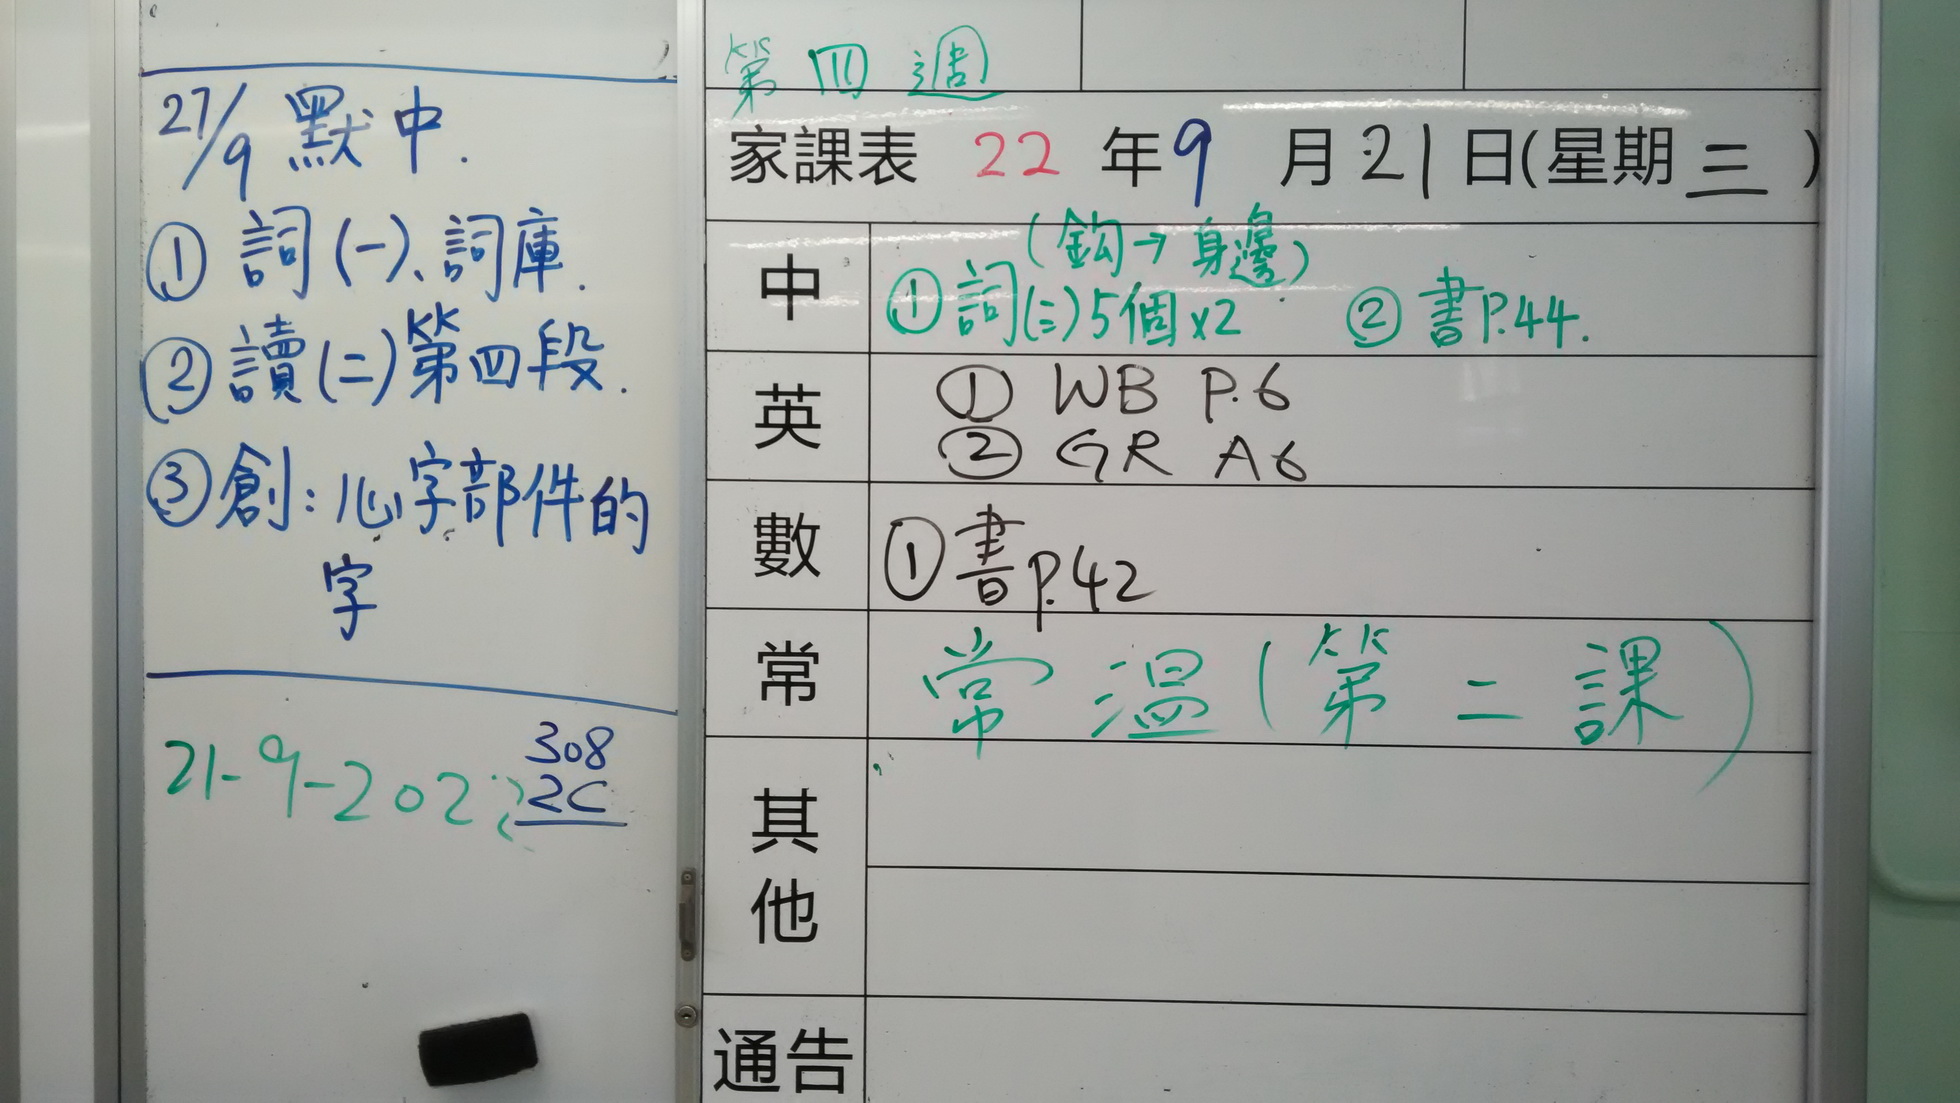 27/9 默中.
① 詞(一)、詞庫.
② 讀(二)第四段.
③ 創：心字部件的
字
21-9-202
308
2C
第四週
家課表 22 年 9 月 21 日(星期 三 )
中
(鈎→身邊)
① 詞(二)5個x2 ② 書P.44.
英
① WB P.6
② GR A6
數
① 書P.42
常
常溫(第二課)
其他
通告